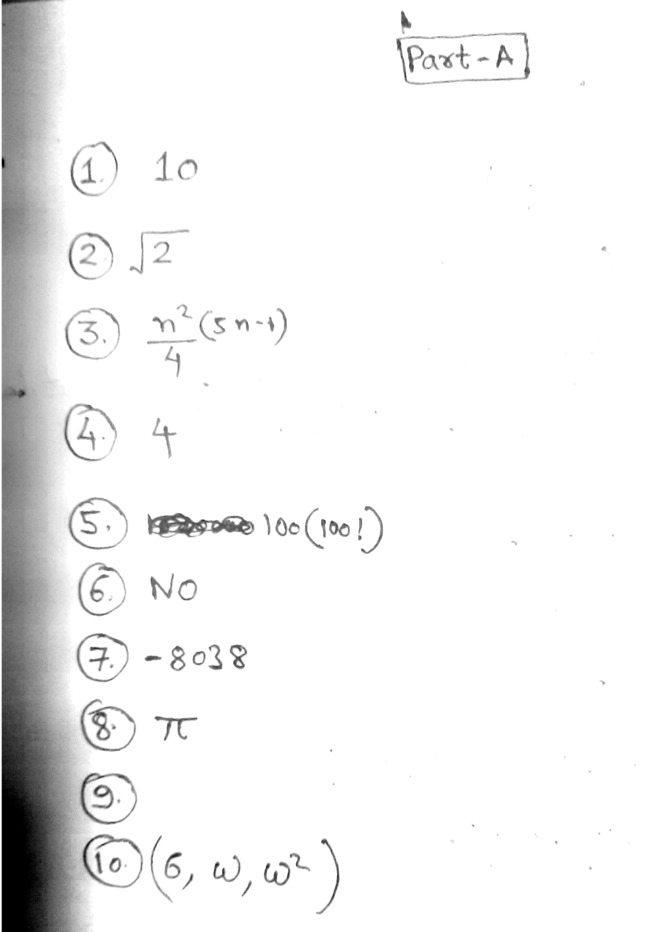 Part-A
1. 10
2 √2
3. n²(5n-1)
4
4. 4
5. 100(100!)
6. NO
7. -8038
8. π
9.
10. (6, ω, ω²)